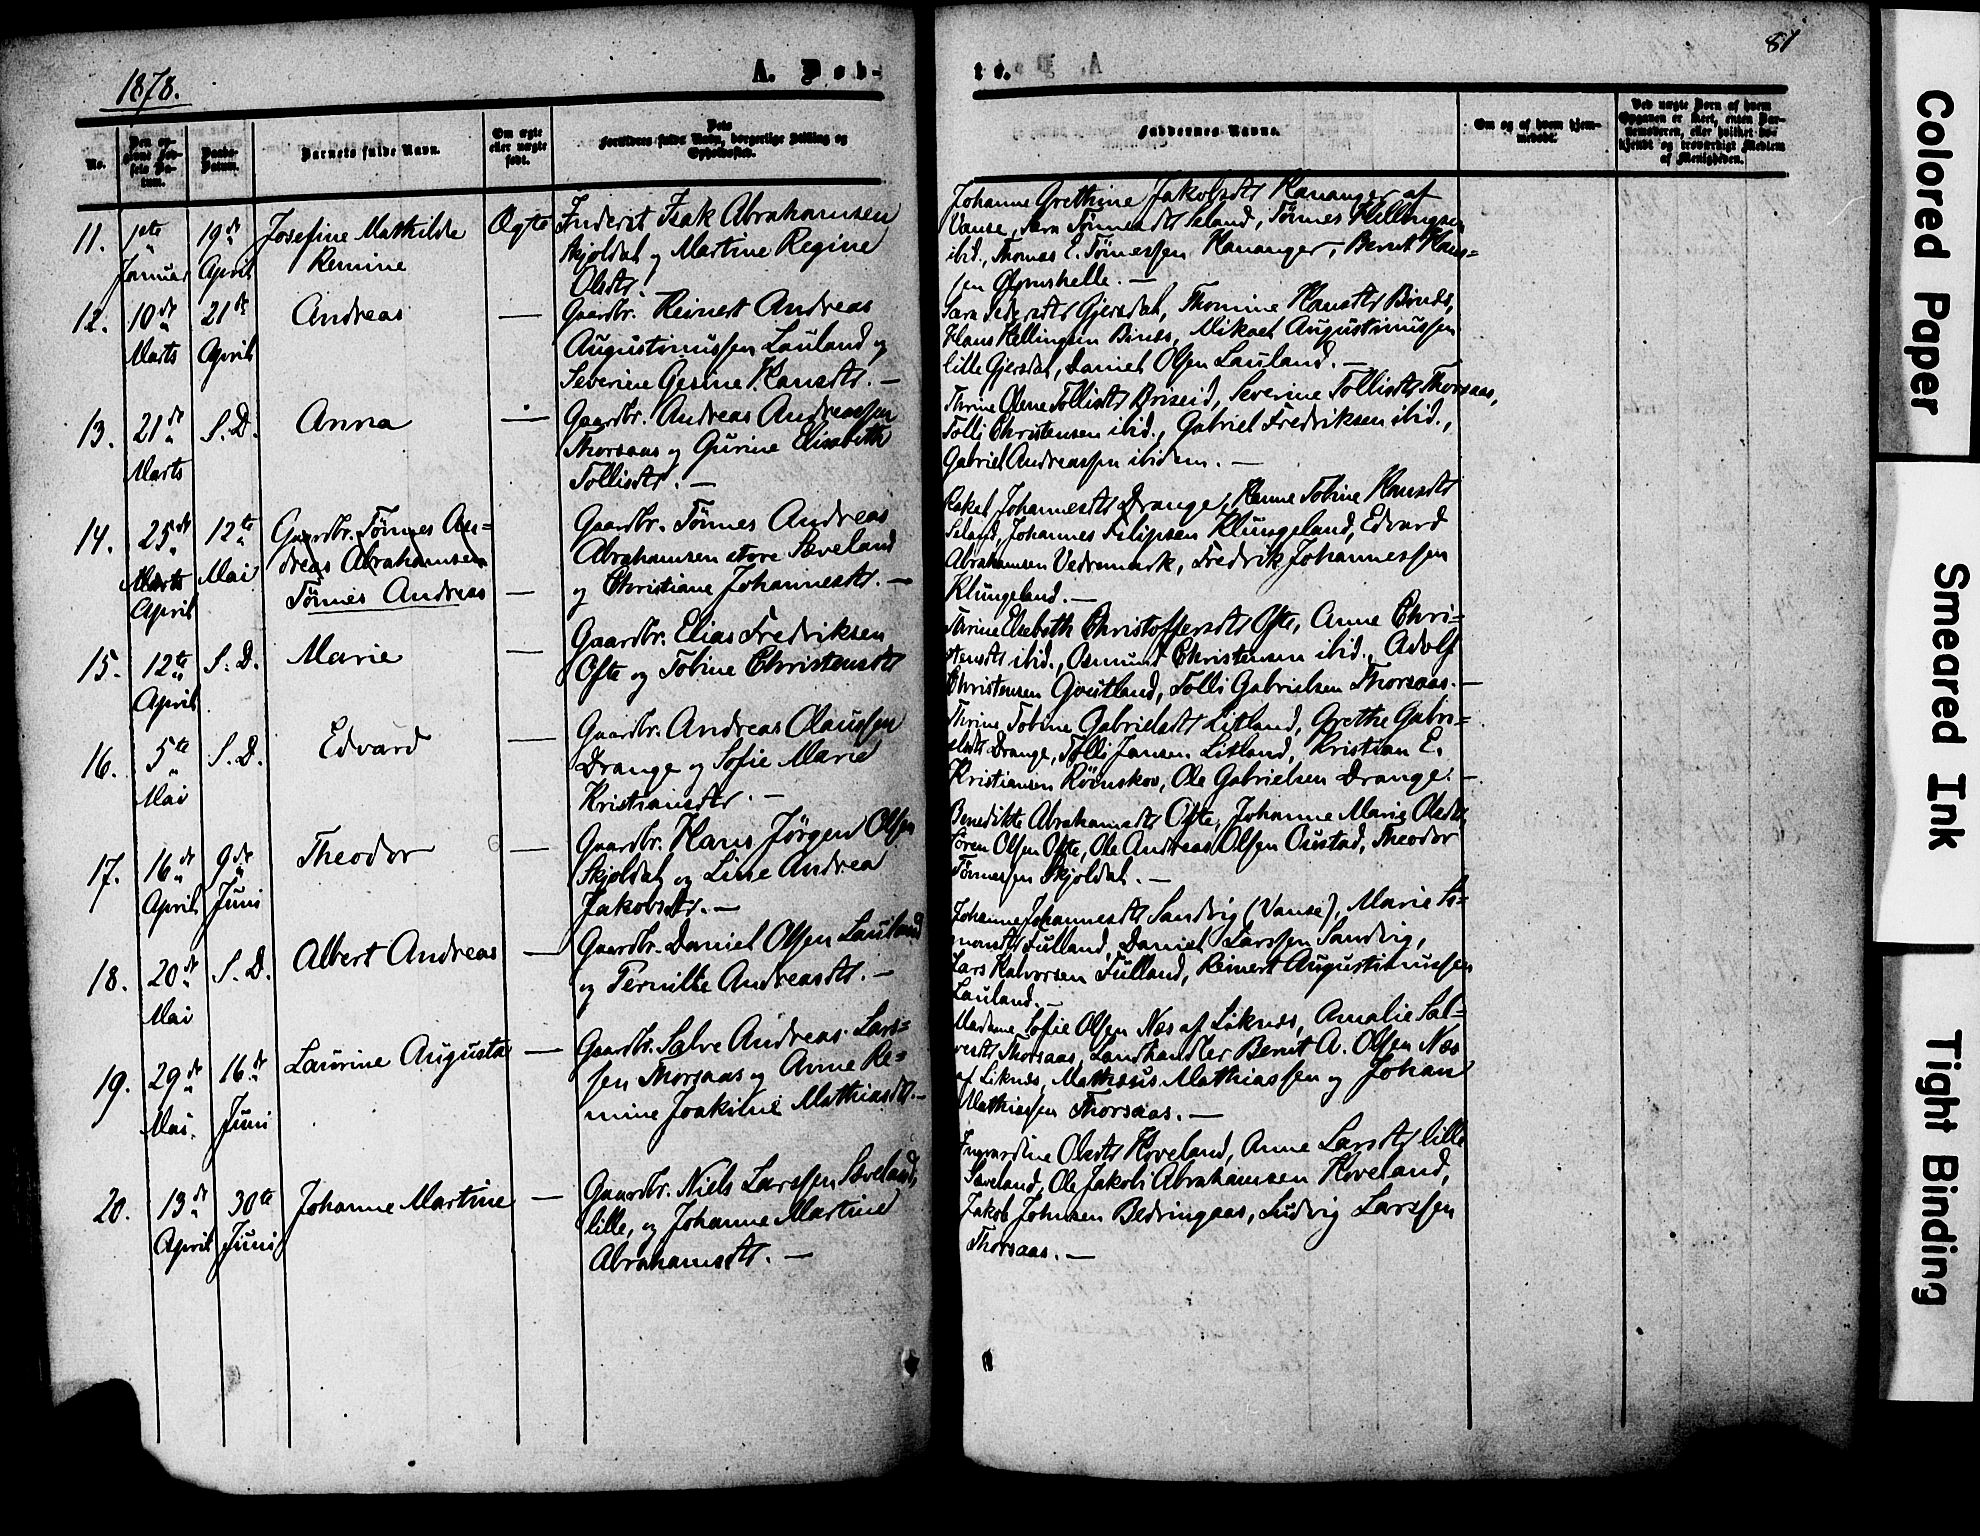 1878.
A. Døb-
No.
Den op-
givne Fød-
sels Da-
tum.
Daabs-
Datum.
Barnets fulde Navn.
Om ægte
eller uægte
født.
Dets
Forældres fulde Navn, borgerlige Stilling og
Opholdssted.
11.
1ste
Januar
19de
April
Josefine Mathilde
Remine
Ægte
Isak Abrahamsen
Skjoldal og Martine Regine
Olsdtr.
12.
10de
Marts
21de
April
Andreas
—
Gaardbr. Reinert Andreas
Augustinussen Lauland og
Severine Gesine Hansdtr. —
13.
21de
Marts
S. D.
Anna
—
Gaardbr. Andreas Andreassen
Thorsaas og Gurine Elisabeth
Tollisdtr. —
14.
25de
Marts
April
12te
Mai
Gaardbr. Tönnes An=
dreas Abrahamsen
Tönnes Andreas
—
Gaardbr. Tönnes Andreas
Abrahamsen store Sæveland
og Christiane Johannesdtr. —
15.
12te
April
S. D.
Marie
—
Gaardbr. Elias Fredriksen
Ofte og Tobine Christensdtr
16.
5te
Mai
S. D.
Edvard
—
Gaardbr. Andreas Claussen
Drange og Sofie Marie
Kristiansdtr. —
17.
16de
April
9de
Juni
Theodor
—
Gaardbr. Hans Jörgen Olsen
Skjoldal og Line Andrea
Jakobsdtr. —
18.
20de
Mai
S. D.
Albert Andreas
—
Gaardbr. Daniel Olsen Lauland
og Pernille Andreasdtr. —
19.
29de
Mai.
16de
Juni
Laurine Augusta
—
Gaardbr. Salve Andreas Lars=
sen Thorsaas og Anne Re=
mine Joakime Mathiasdtr. —
20.
13de
April
30te
Juni
Johanne Martine
—
Gaardbr. Niels Larssen Sæveland,
lille, og Johanne Martine
Abrahamsdtr. —
81
te.
Faddernes Navne.
Om og af hvem hjem-
medøbt.
Ved uægte Børn af hvem
Opgaven er skeet, enten Bar-
nemoderen, eller hvilket be-
kjendt og troværdigt Medlem
af Menigheden.
Johanne Grethine Jakobsdtr Hananger af
Vanse, Sara Tönnesdtr Seland, Tönnes Hellingsen
ibid., Thomas E. Tönnessen Hananger, Bernt Hans=
sen
Sara Gjersdal, Thomine Hansdtr Birids,
Hans Hellingsen Birids, Mikael Augustinussen
lille Gjersdal, Daniel Olsen Lauland. —
Thrine Olene Tollisdtr Briseid, Severine Tollisdtr Thorsaas,
Tolli Christensen ibid., Gabriel Fredriksen ibid.,
Gabriel Andreassen ibidem. —
Rakel Johannesdtr Drange, Hanne Tobine Hansdtr
Seland, Johannes Filipsen Klungeland, Edvard
Abrahamsen Vedremark, Fredrik Johannessen
Klungeland. —
Thrine Elsebeth Christoffersdtr Ofte, Anne Chri=
stensdtr ibid., Osmund Christensen ibid., Adolf
Christensen Gjeutland, Tolli Gabrielsen Thorsaas. —
Thrine Tobine Gabrielsdtr Litland, Grethe Gabri=
elsdtr Drange, Tolli Jansen Litland, Kristian E.
Kristiansen Röinskov, Ole Gabrielsen Drange. —
Benedikte Abrahamsdtr Ofte, Johanne Marie Olsdtr,
Sören Olsen Ofte, Ole Andreas Olsen Oustad, Theodor
Tönnessen Skjoldal. —
Johanne Johannesdtr Sandvig (Vanse), Marie As=
mundsdtr Fulland, Daniel Larssen Sandvig,
Lars Halvorsen Fulland, Reinert Augustinussen
Lauland. —
Madame Sofie Olsen Næs af Liknes, Amalie Sal=
vesdtr Thorsaas, Landhandler Bernt A. Olsen Næs
af Liknes, Mathæus Mathiassen og Johan
Mathiassen Thorsaas. —
Ingvardine Olsdtr Hoveland, Anne Larsdtr lille
Sæveland, Ole Jakob Abrahamsen Hoveland,
Jakob Johnsen Bedringaas, Ludvig Larssen
Thorsaas. —
Colored Paper
Smeared Ink
Tight Binding